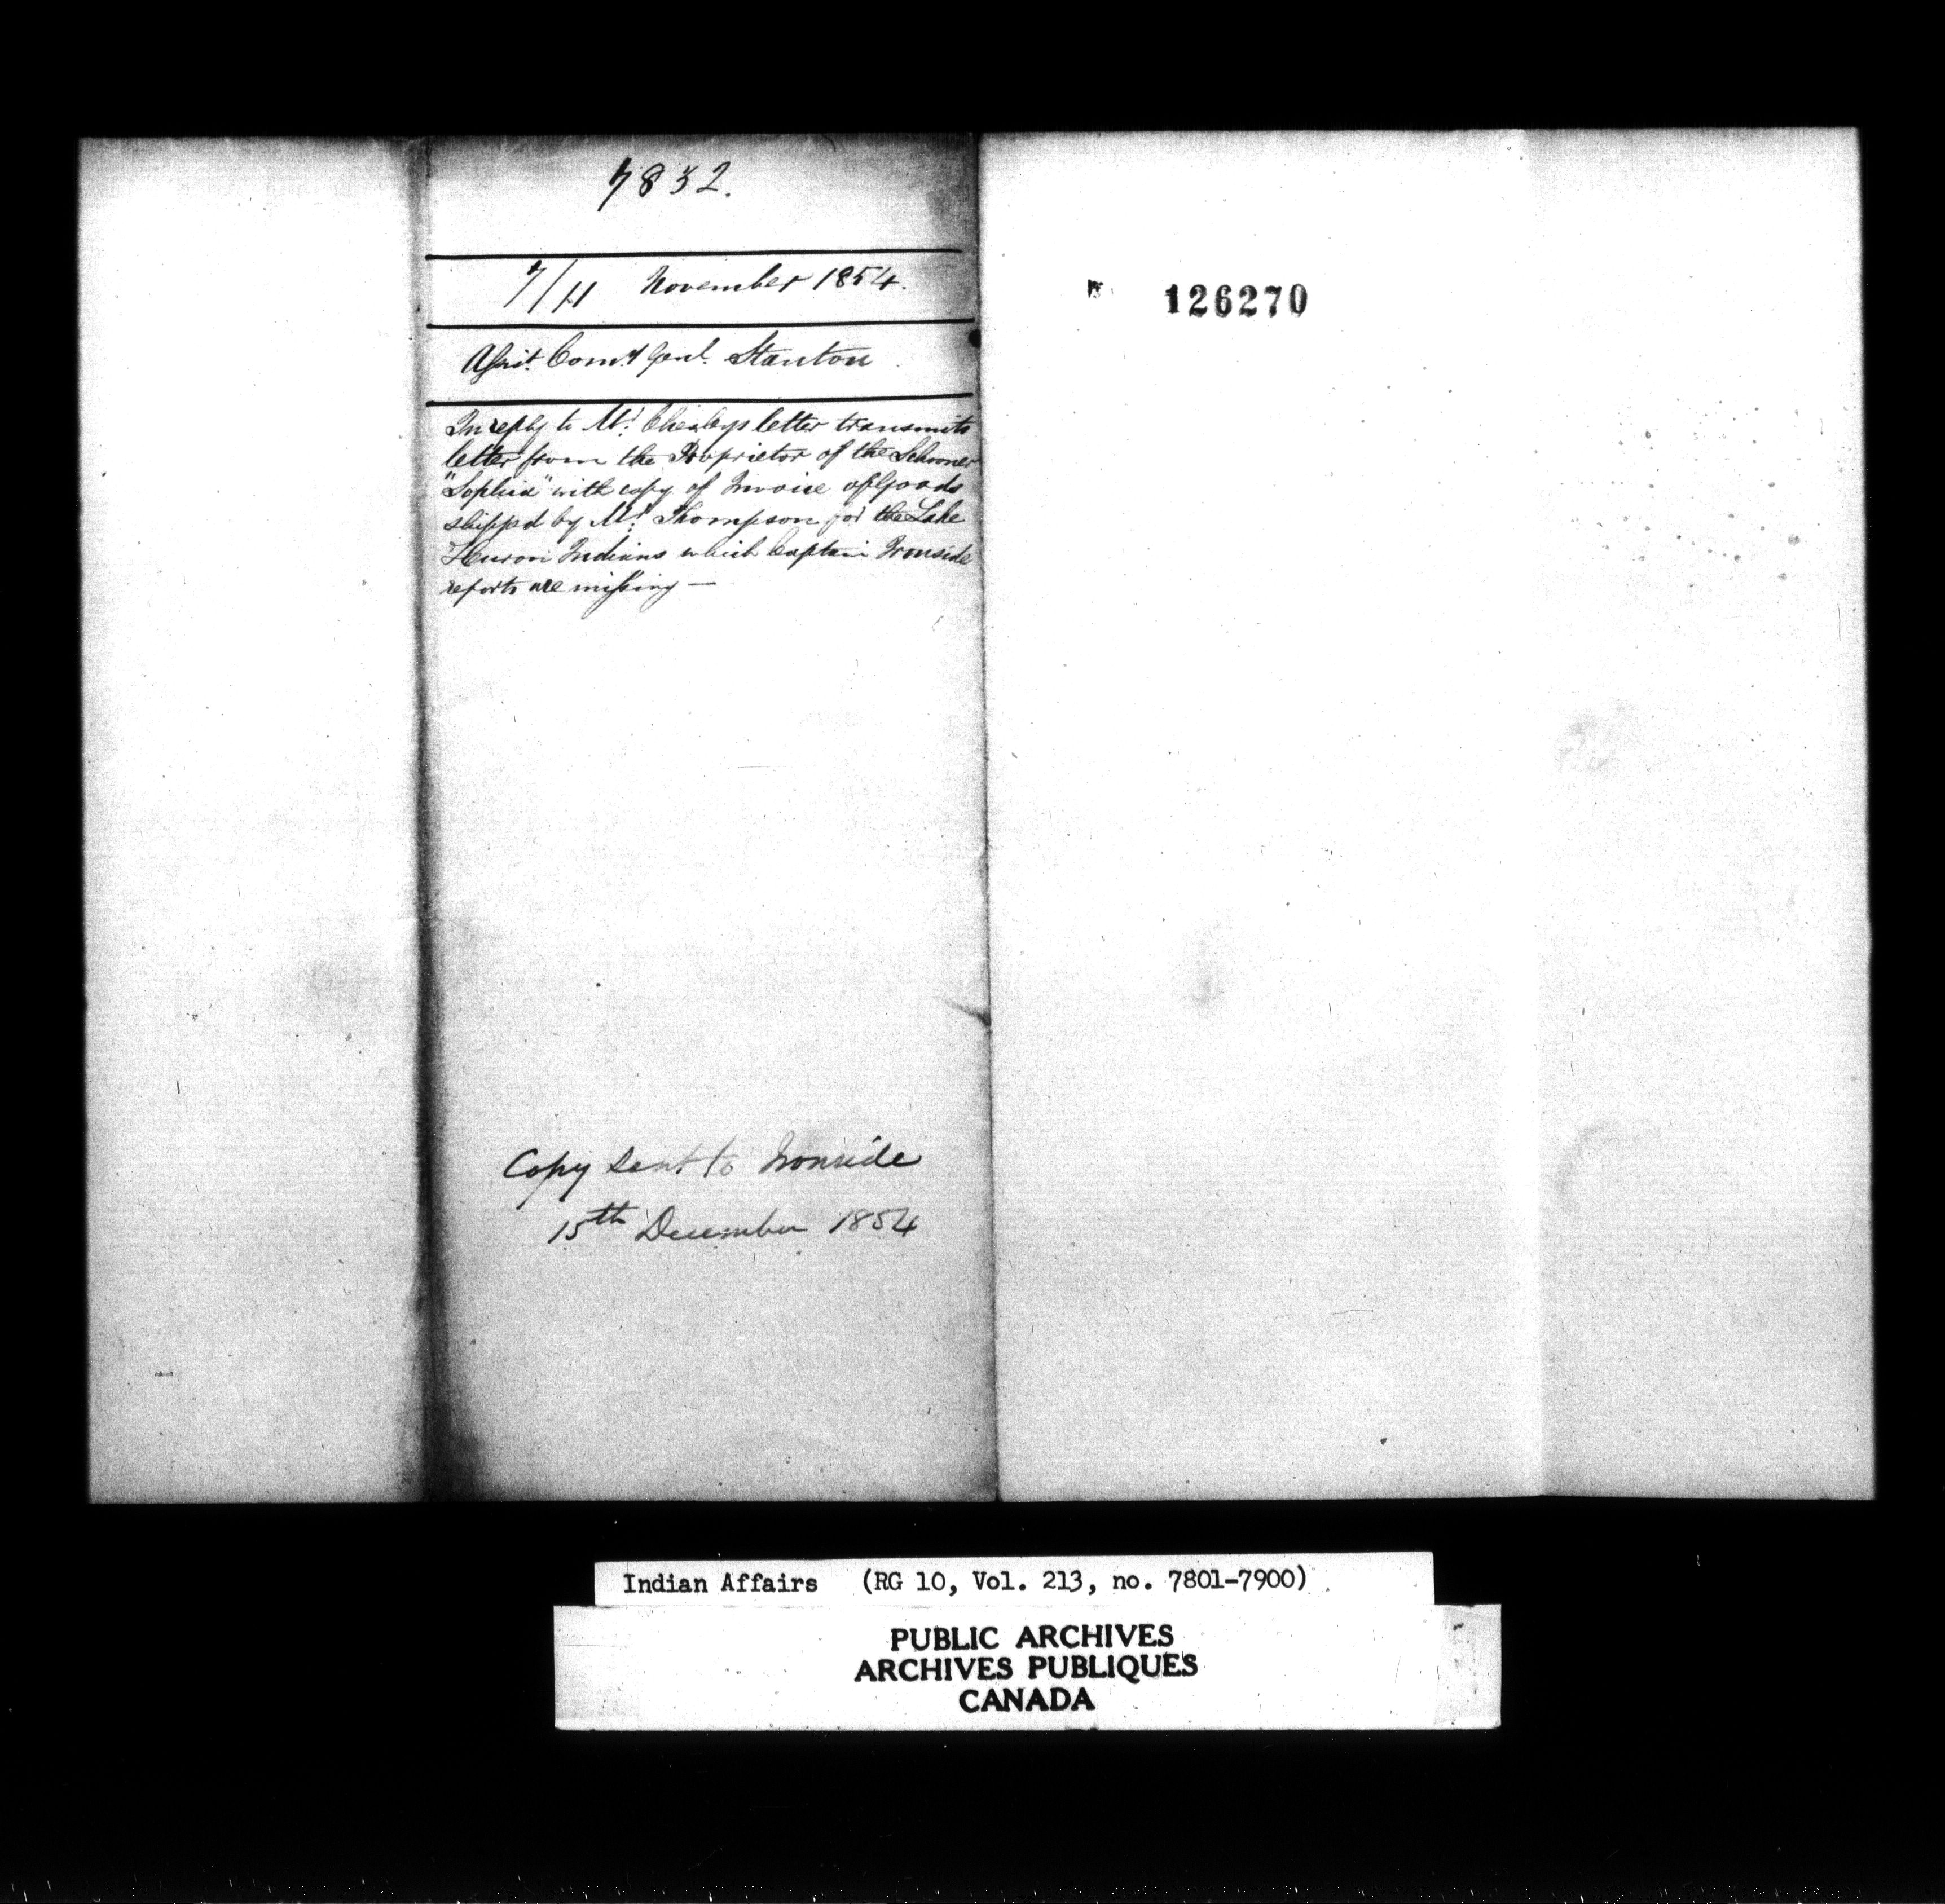 7832.
7/11 November 1854.
Assist. Comy Genl. Stanton
In reply to Mr. Chesleys letter transmits
letter from the Proprietor of the Schooner
"Sophia" with copy of Invoice of Goods
shippd by Mr. Thompson for the Lake
Huron Indians which Captain Ironside
reports are missing —
Copy sent to Ironside
15th December 1854
126270
Indian Affairs (RG 10, Vol. 213, no. 7801-7900)
PUBLIC ARCHIVES
ARCHIVES PUBLIQUES
CANADA